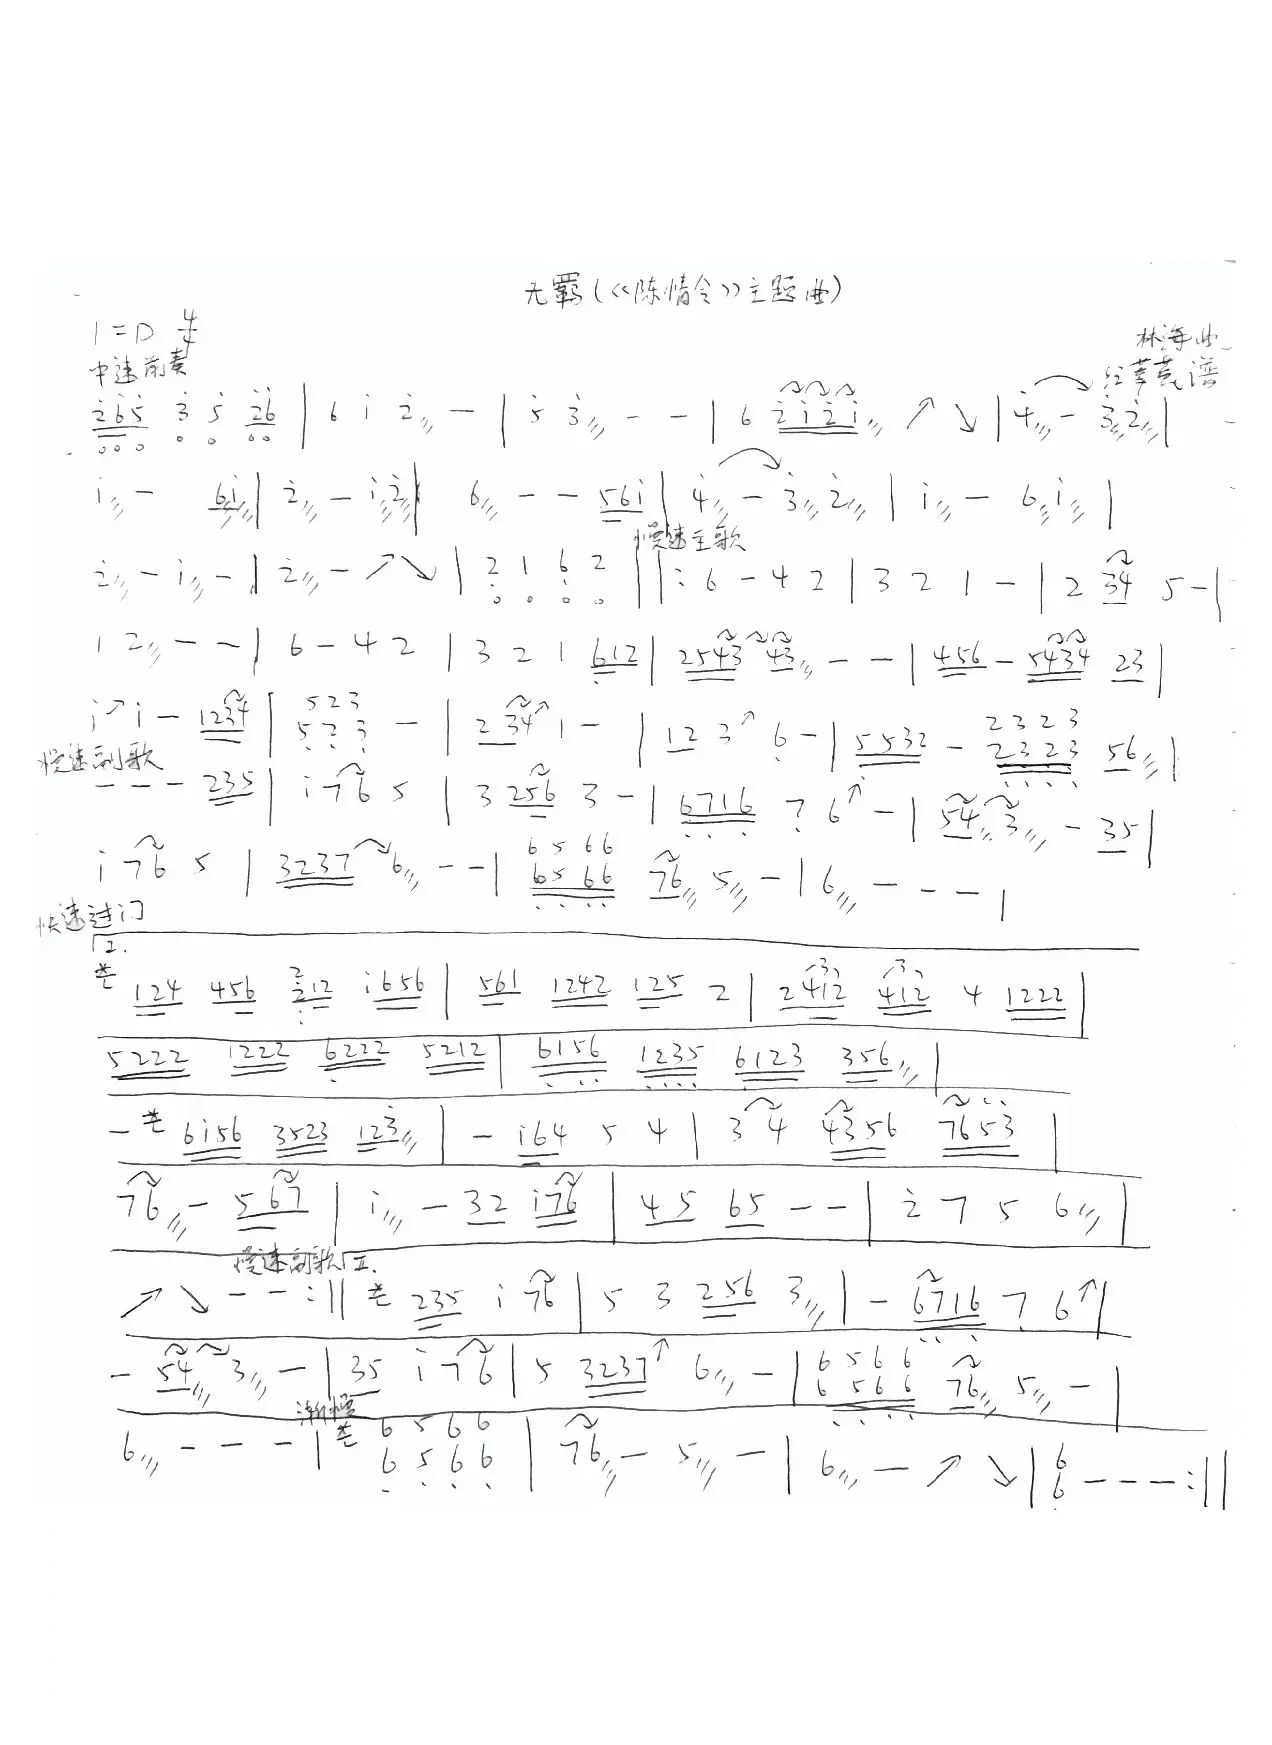 无羁(《陈情令》主题曲)
1=D 4/4
林海曲
中速前奏
2̇6̇5̇ 3̇ 5̇ 2̇6̇ | 6 i 2̇ - | 5̇ 3̇ - - | 6 2̇i2̇i ↗ ↘ | 4̇ - 3̇ 2̇ |
i - 6i | 2̇ - i 2̇ | 6 - - 56i | 4̇ - 3̇ 2̇ | i - 6 i |
慢速主歌
2̇ - i - | 2̇ - ↗ ↘ | 2 1 6 2 ||: 6 - 4 2 | 3 2 1 - | 2 34 5 - |
1 2 - - | 6 - 4 2 | 3 2 1 6̣12 | 2543 43 - - | 456 - 5434 23 |
i ↗ i - 1234 | 5 2 3 5̣ 2̣ 3̣ - | 2 34 ↗ 1 - | 12 3 ↗ 6̣ - | 5532 - 2323 2̣3̣2̣3̣ 56 |
慢速副歌
- - - 235 | i 76 5 | 3 256 3 - | 6̣7̣16̣ 7̣ 6 ↗ - | 54 3 - 35 |
i 76 5 | 3237 6 - - | 6566 6̣5̣6̣6̣ 76 5 - | 6 - - - |
快速过门
I.
124 456 2 2̣12 i656 | 561 1242 125 2 | 2 412 412 4 1222 |
5222 1222 6̣222 5212 | 6̣15̣6̣ 1̣2̣3̣5̣ 6̣123 356 |
- 6i56 3523 123̇ | - i64 5 4 | 3 4 4356 7653 |
76 - 5 67 | i - 32 i76 | 45 65 - - | 2̇ 7 5 6 |
慢速副歌 II.
↗ ↘ - - :|| 235 i 76 | 5 3 256 3 | - 6̣7̣16̣ 7̣ 6 ↗ |
- 54 3 - | 35 i 76 | 5 3237 ↗ 6 - | 6566 6̣5̣6̣6̣ 76 5 - |
渐慢
6 - - - | 6566 6̣5̣6̣6̣ | 76 - 5 - | 6 - ↗ ↘ | 6 6̣ - - - :||